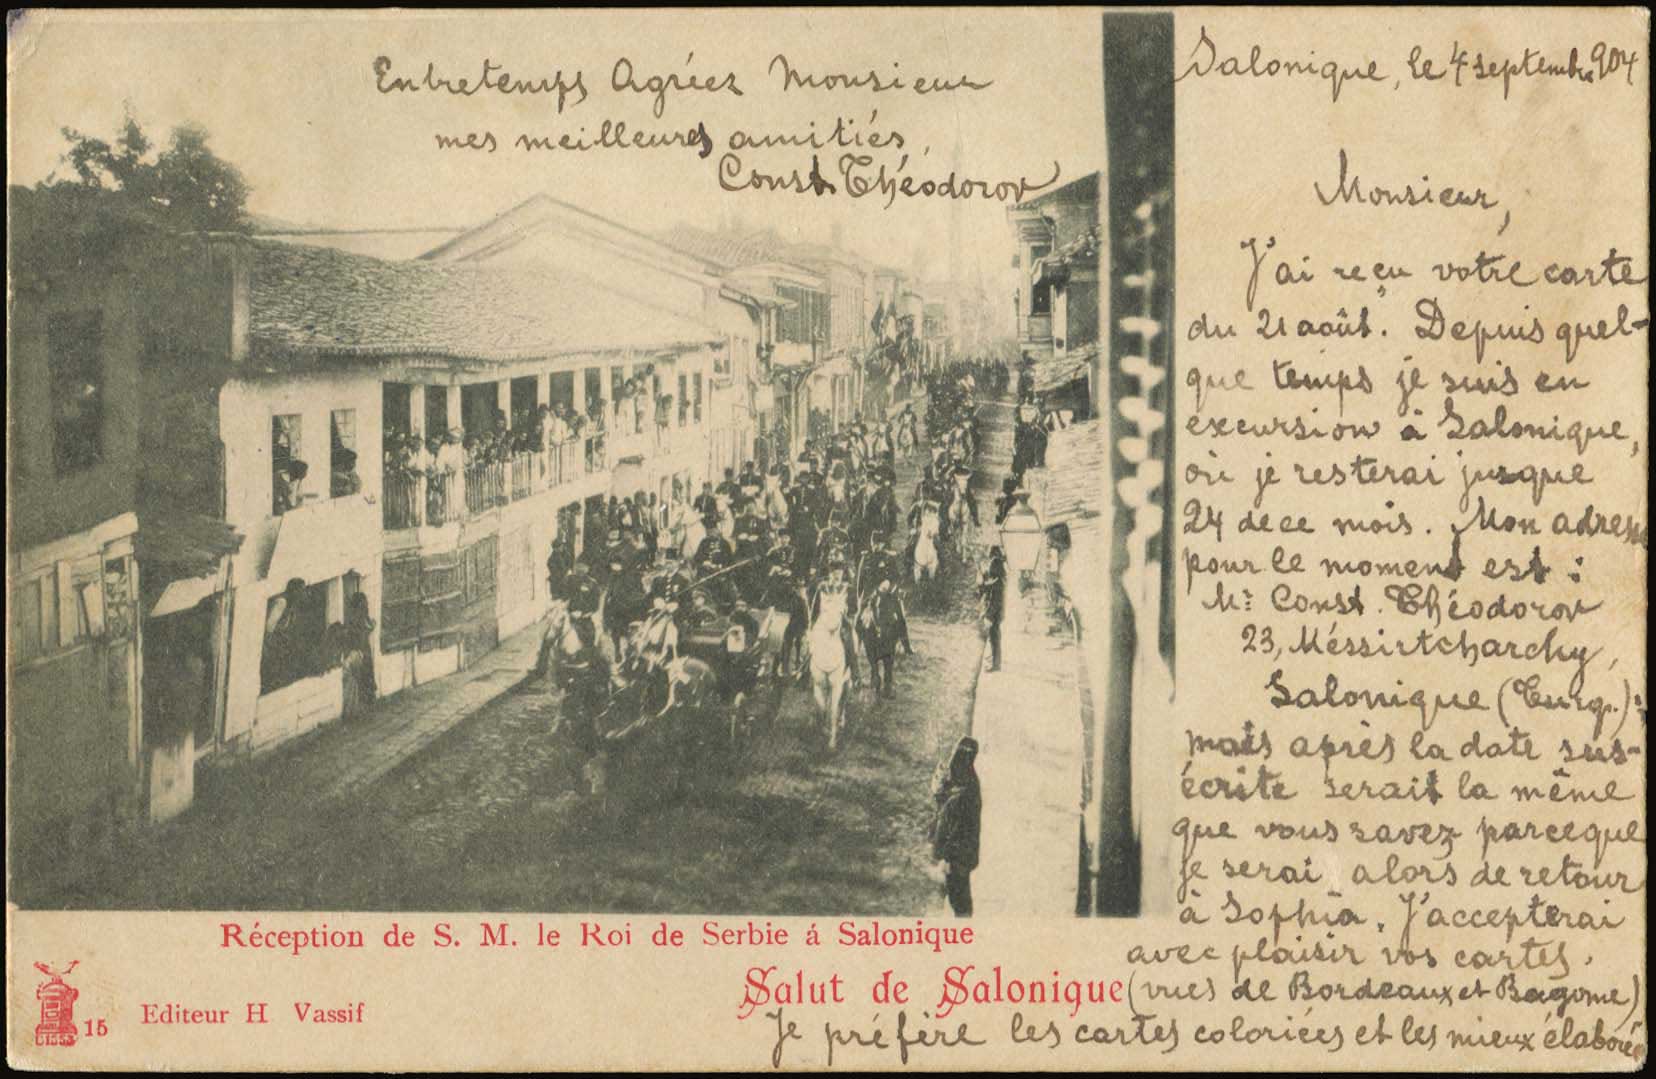 Salonique, le 4 septembre 904
Monsieur,
J'ai reçu votre carte
du 21 août. Depuis quel-
que temps je suis en
excursion à Salonique,
où je resterai jusque
24 de ce mois. Mon adresse
pour le moment est :
Mr. Const. Théodorov
23, Méssirtcharchy,
Salonique (Turq.);
mais après la date sus-
écrite serait la même
que vous savez parceque
je serai alors de retour
à Sophia. J'accepterai
avec plaisir vos cartes.
(vues de Bordeaux et
Je préfère les cartes coloriées et les mieux élaborées
Entretemps Agréez Monsieur
mes meilleures amitiés,
Const. Théodorov
Réception de S. M. le Roi de Serbie á Salonique
Salut de Salonique
15 Editeur H Vassif